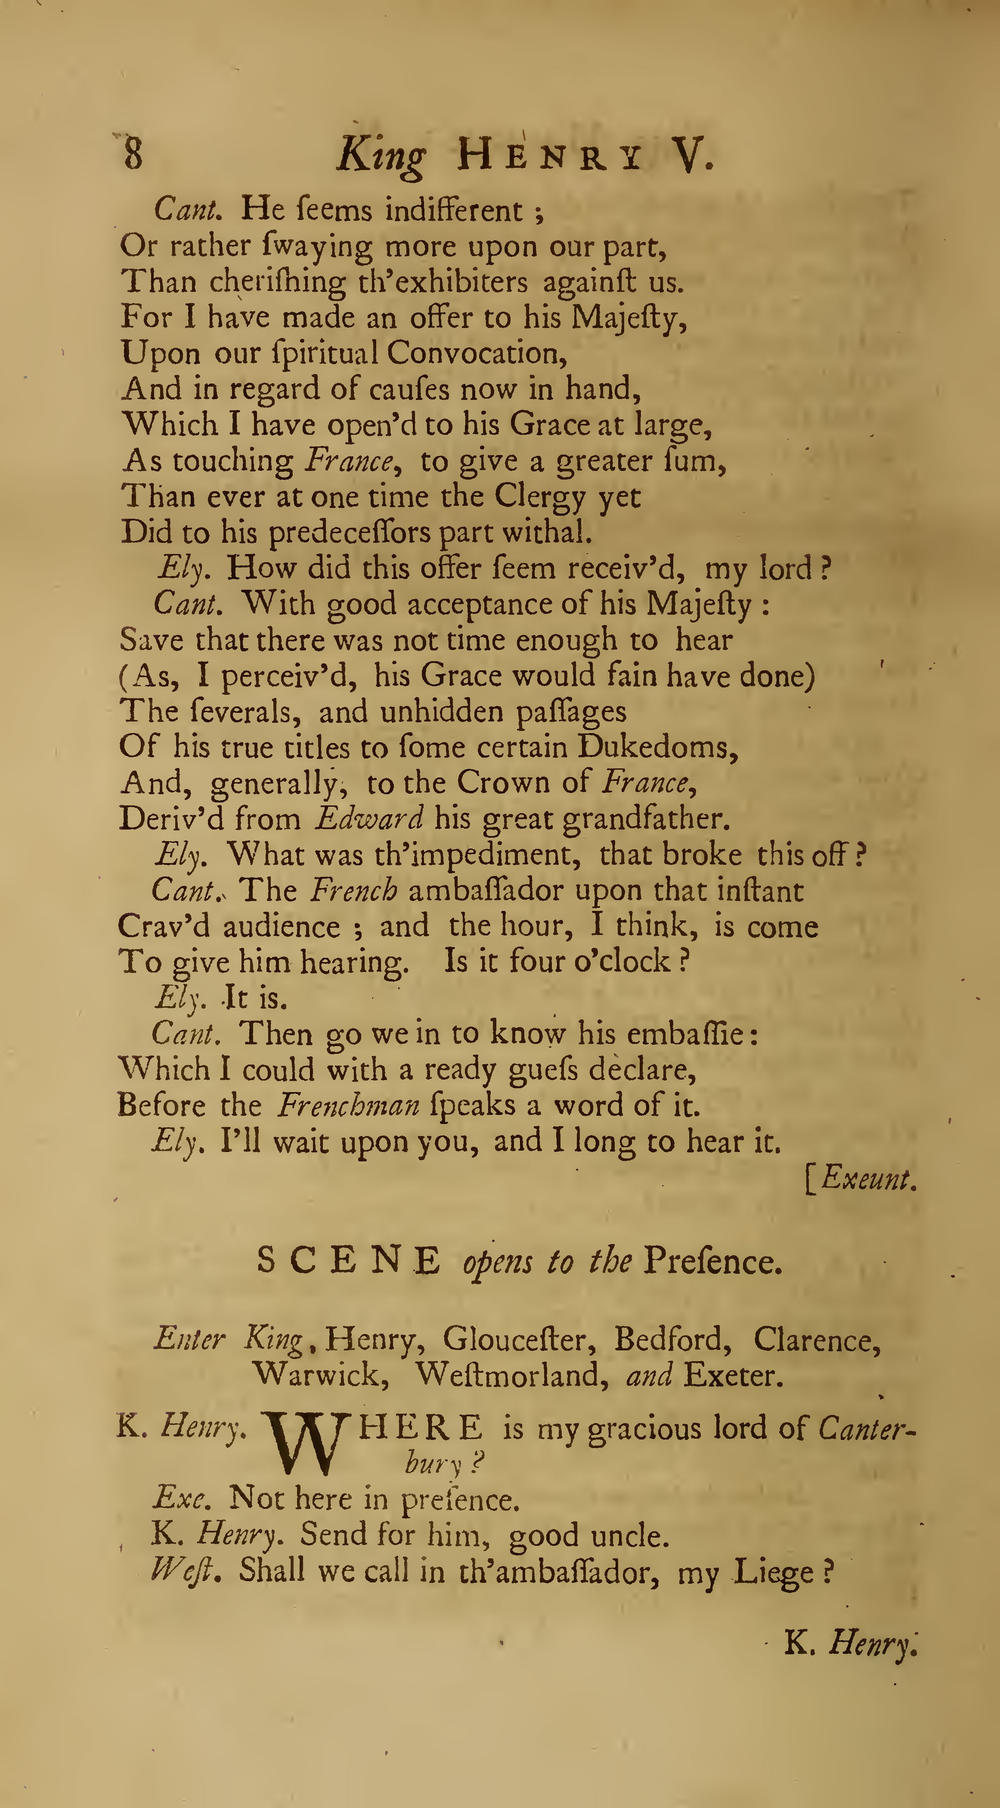 8 King HENRY V.
Cant. He ſeems indifferent ;
Or rather ſwaying more upon our part,
Than cheriſhing th'exhibiters againſt us.
For I have made an offer to his Majeſty,
Upon our ſpiritual Convocation,
And in regard of cauſes now in hand,
Which I have open'd to his Grace at large,
As touching France, to give a greater ſum,
Than ever at one time the Clergy yet
Did to his predeceſſors part withal.
Ely. How did this offer ſeem receiv'd, my lord ?
Cant. With good acceptance of his Majeſty :
Save that there was not time enough to hear
(As, I perceiv'd, his Grace would fain have done)
The ſeverals, and unhidden paſſages
Of his true titles to ſome certain Dukedoms,
And, generally, to the Crown of France,
Deriv'd from Edward his great grandfather.
Ely. What was th'impediment, that broke this off ?
Cant. The French ambaſſador upon that inſtant
Crav'd audience ; and the hour, I think, is come
To give him hearing. Is it four o'clock ?
Ely. It is.
Cant. Then go we in to know his embaſſie :
Which I could with a ready gueſs declare,
Before the Frenchman ſpeaks a word of it.
Ely. I'll wait upon you, and I long to hear it.
[Exeunt.
SCENE opens to the Preſence.
Enter King, Henry, Glouceſter, Bedford, Clarence,
Warwick, Weſtmorland, and Exeter.
K. Henry. WHERE is my gracious lord of Canter-
bury ?
Exe. Not here in preſence.
K. Henry. Send for him, good uncle.
Weſt. Shall we call in th'ambaſſador, my Liege ?
K. Henry.